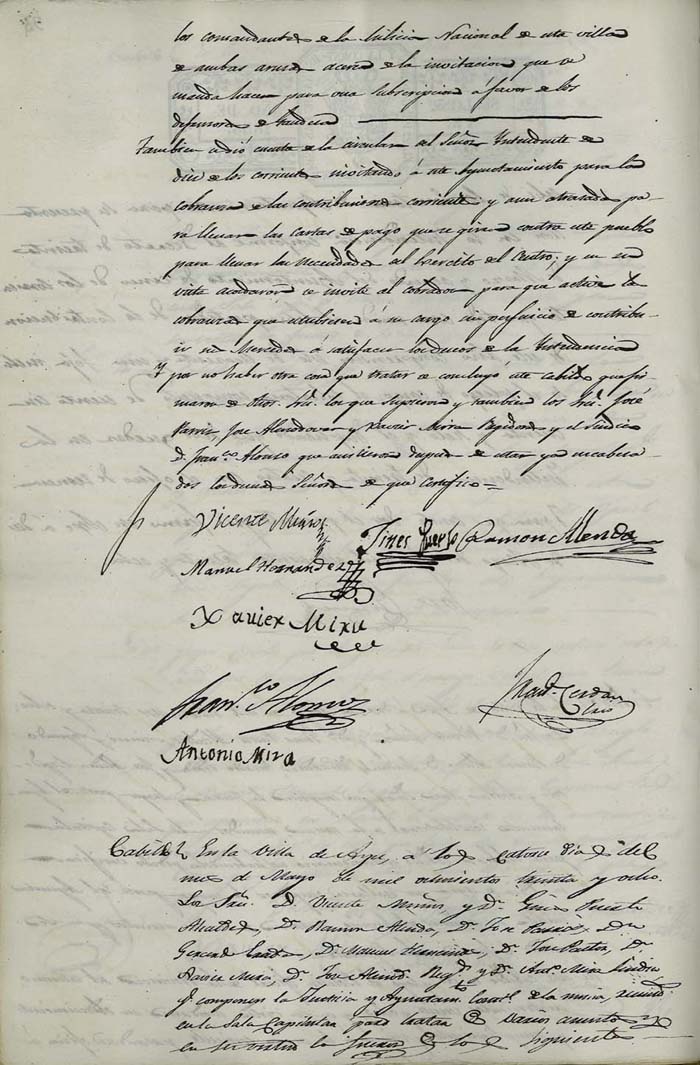 los comandantes de la Milicia Nacional de esta villa
de ambas armas acerca de la invitacion que se
manda hacer para una subscripcion á favor de los
defensores de
Tambien se dió cuenta de la circular del Señor Intendente de
diez de los corrientes invitando á este Ayuntamiento para la
cobranza de las contribuciones corrientes y aun atrasadas pa
ra llenar las cartas de pago que se giran contra este pueblo
para llenar las necesidades del Exercito del Centro; y en su
vista acordaron se invite al cobrador para que active la
cobranza que estubiere á su cargo sin perjuicio de contribu
ir sus Mercedes á satisfacer los deseos de la Yntendencia
Y por no haber otra cosa que tratar se concluyo este cabildo que fir
maron de dhos. Sres. los que supieron y tambien los Sres. José
Parris, Jose Almodovar y Xavier Mira Regidores y el Sindico
D. Franco Alonso que asistieron despues de estar ya encabeza
dos los demas Señores de que certifico =
Vicente Muñoz
Gines Puerto Ramon Alenda
Manuel Hernandez
Xavier Mira
Franco Alonso
Franco. Cerdan
Srio
Antonio Mira
Cabildo En la Villa de Aspe, a los Catorce dias del
mes de Mayo de mil ochocientos treinta y ocho.
Los Sres. D. Vicente Muñoz y Dn. Gines Puerto
Alcaldes, Dn. Ramon Alenda, Dn. Jose
Dn. Manuel Hernandez, Dn. Jose Pastor, Dn.
Xavier Mira, Dn. Jose Almod. Regs. y Dn. Anto. Mira Sindico
q. componen la Justicia y Ayuntamto. Constl. de la misma, reunidos
en la Sala Capitular para tratar de varios asuntos
en se trató lo siguiente